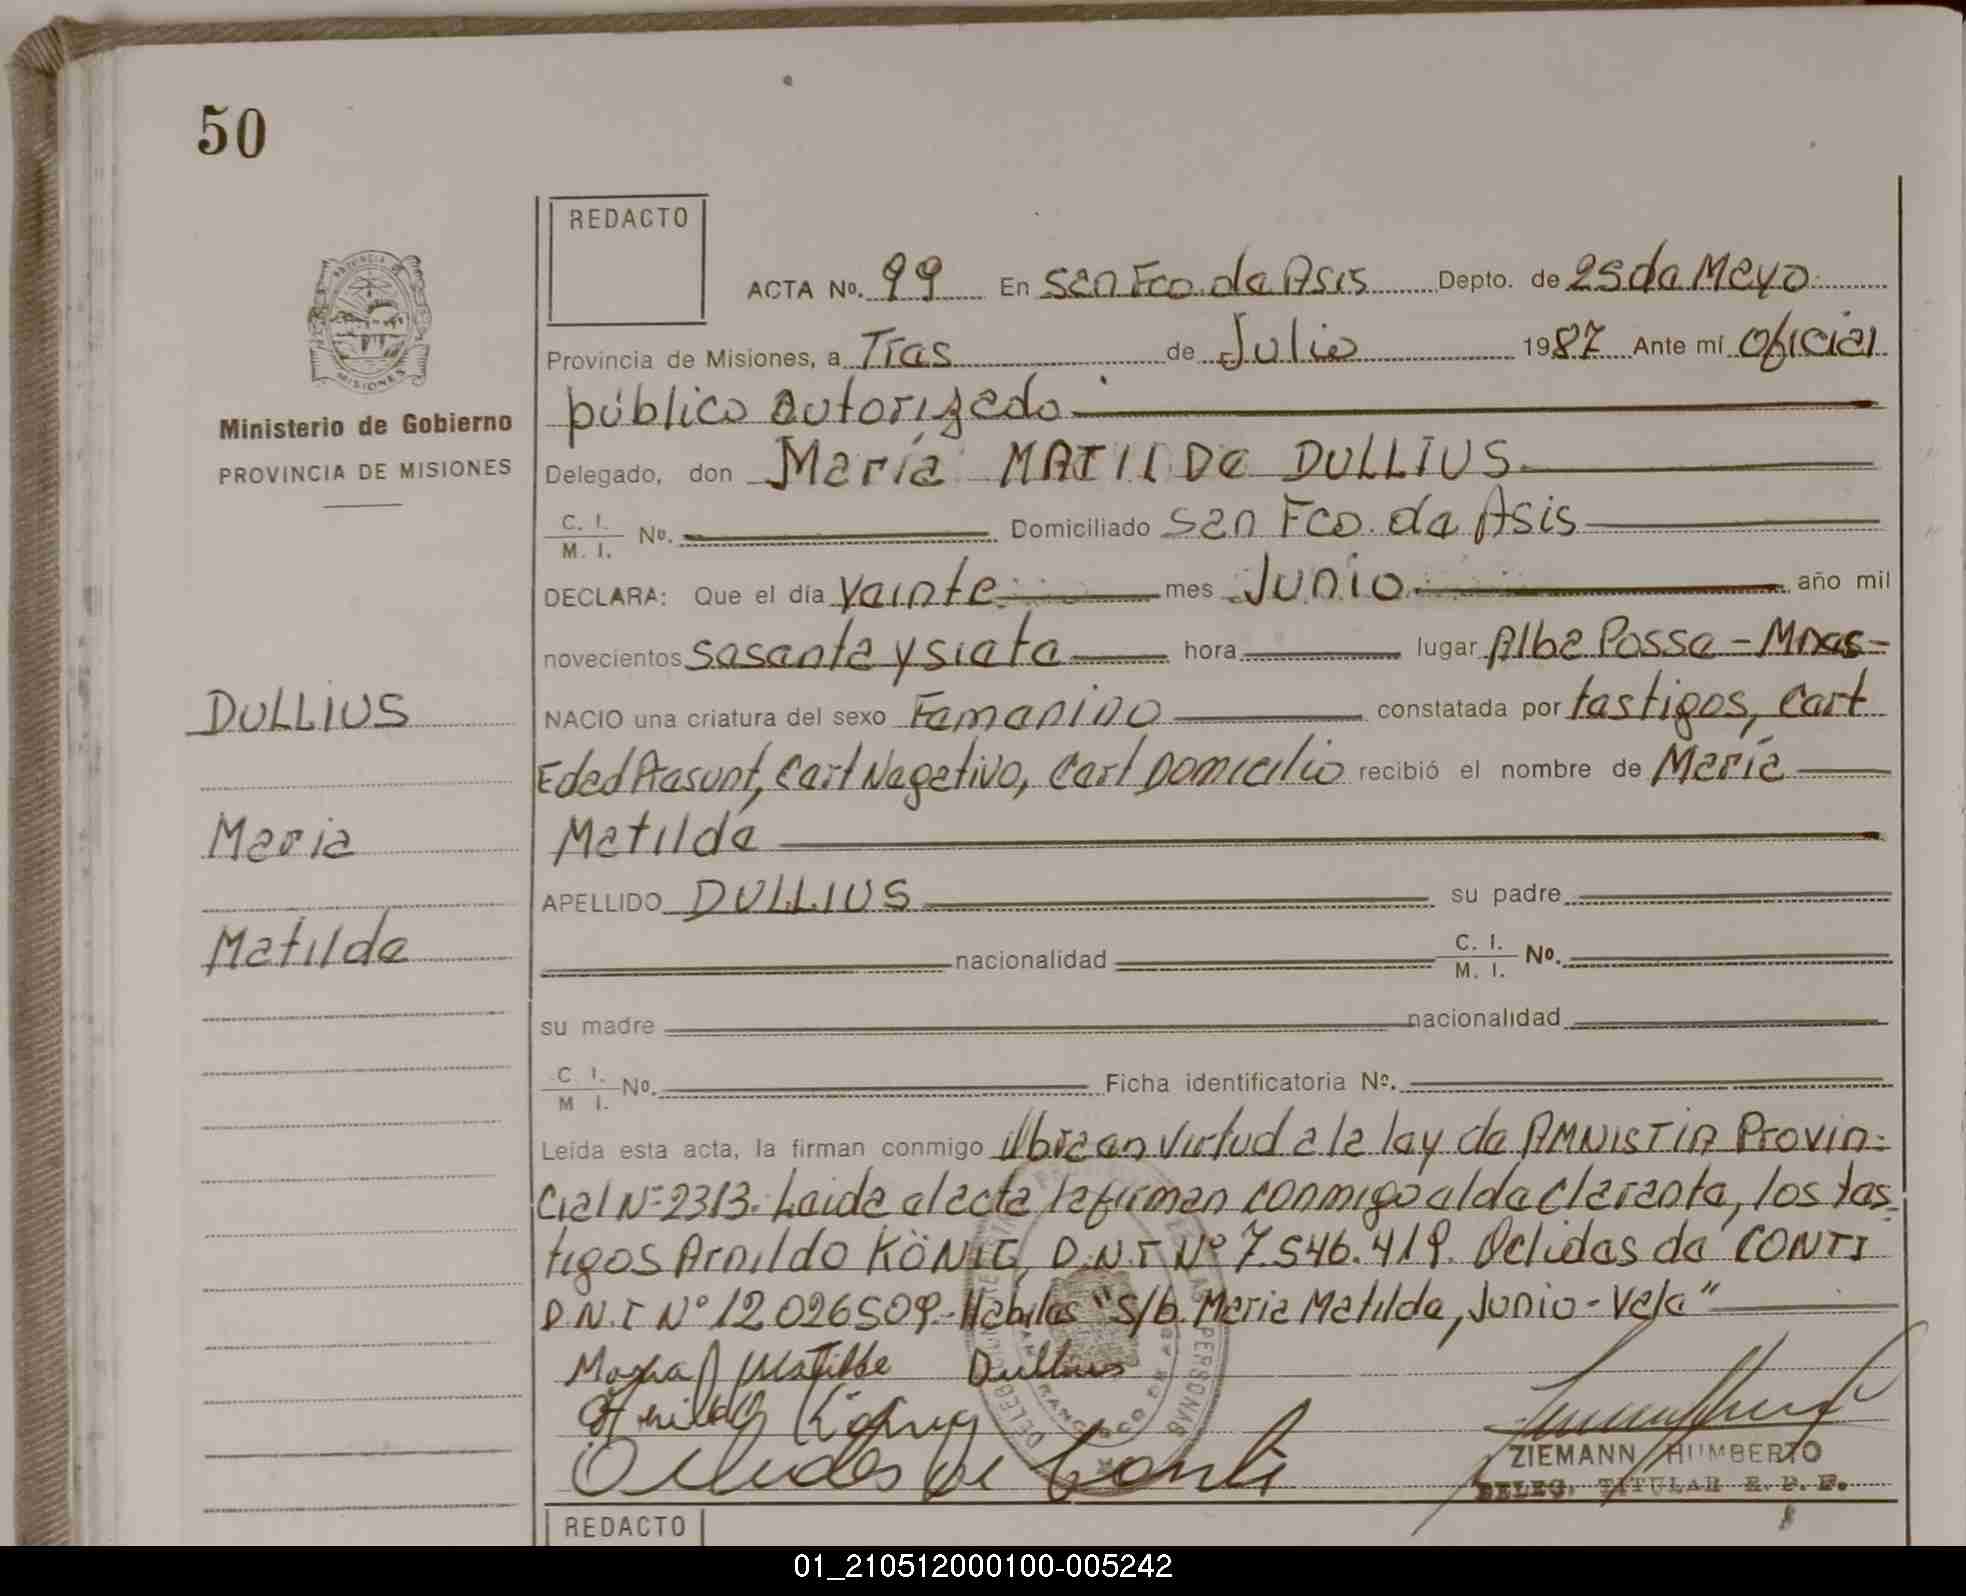 50
REDACTO
PROVINCIA DE
MISIONES
Ministerio de Gobierno
PROVINCIA DE MISIONES
ACTA No. 99 En San Fco. de Asis Depto. de 25 de Mayo
Provincia de Misiones, a Tres de Julio 1987 Ante mí oficial
público autorizado
Delegado, don María MATILDe DULLIUS
C. I. M. I. No. Domiciliado San Fco. de Asis
DECLARA: Que el día Veinte mes Junio año mil
novecientos sesenta y siete hora lugar Alba Posse - Mnes-
DULLIUS
NACIO una criatura del sexo Femenino constatada por testigos, Cert
Edad Presunt, Cert Negativo, Cert Domicilio recibió el nombre de María
Maria
Matilde
APELLIDO DULLIUS su padre
Matilde
nacionalidad C. I. M. I. No.
su madre nacionalidad
C. I. M. I. No. Ficha identificatoria Nº.
Leída esta acta, la firman conmigo libre en virtud a la ley de AMNISTIA Provin-
cial Nº 2313. Leida el acta la firman conmigo el declarante, los tes-
tigos Arnildo KÖNIG, D.N.I Nº 7.546.419. Oclides de CONTI
D.N.I Nº 12.026509.- Habiles "S/b. Maria Matilde, Junio - Vale"
Maria Matilde Dullius
König
Oclides de Conti
ZIEMANN HUMBERTO
DELEG. TITULAR R. P. P.
REDACTO
01_210512000100-005242